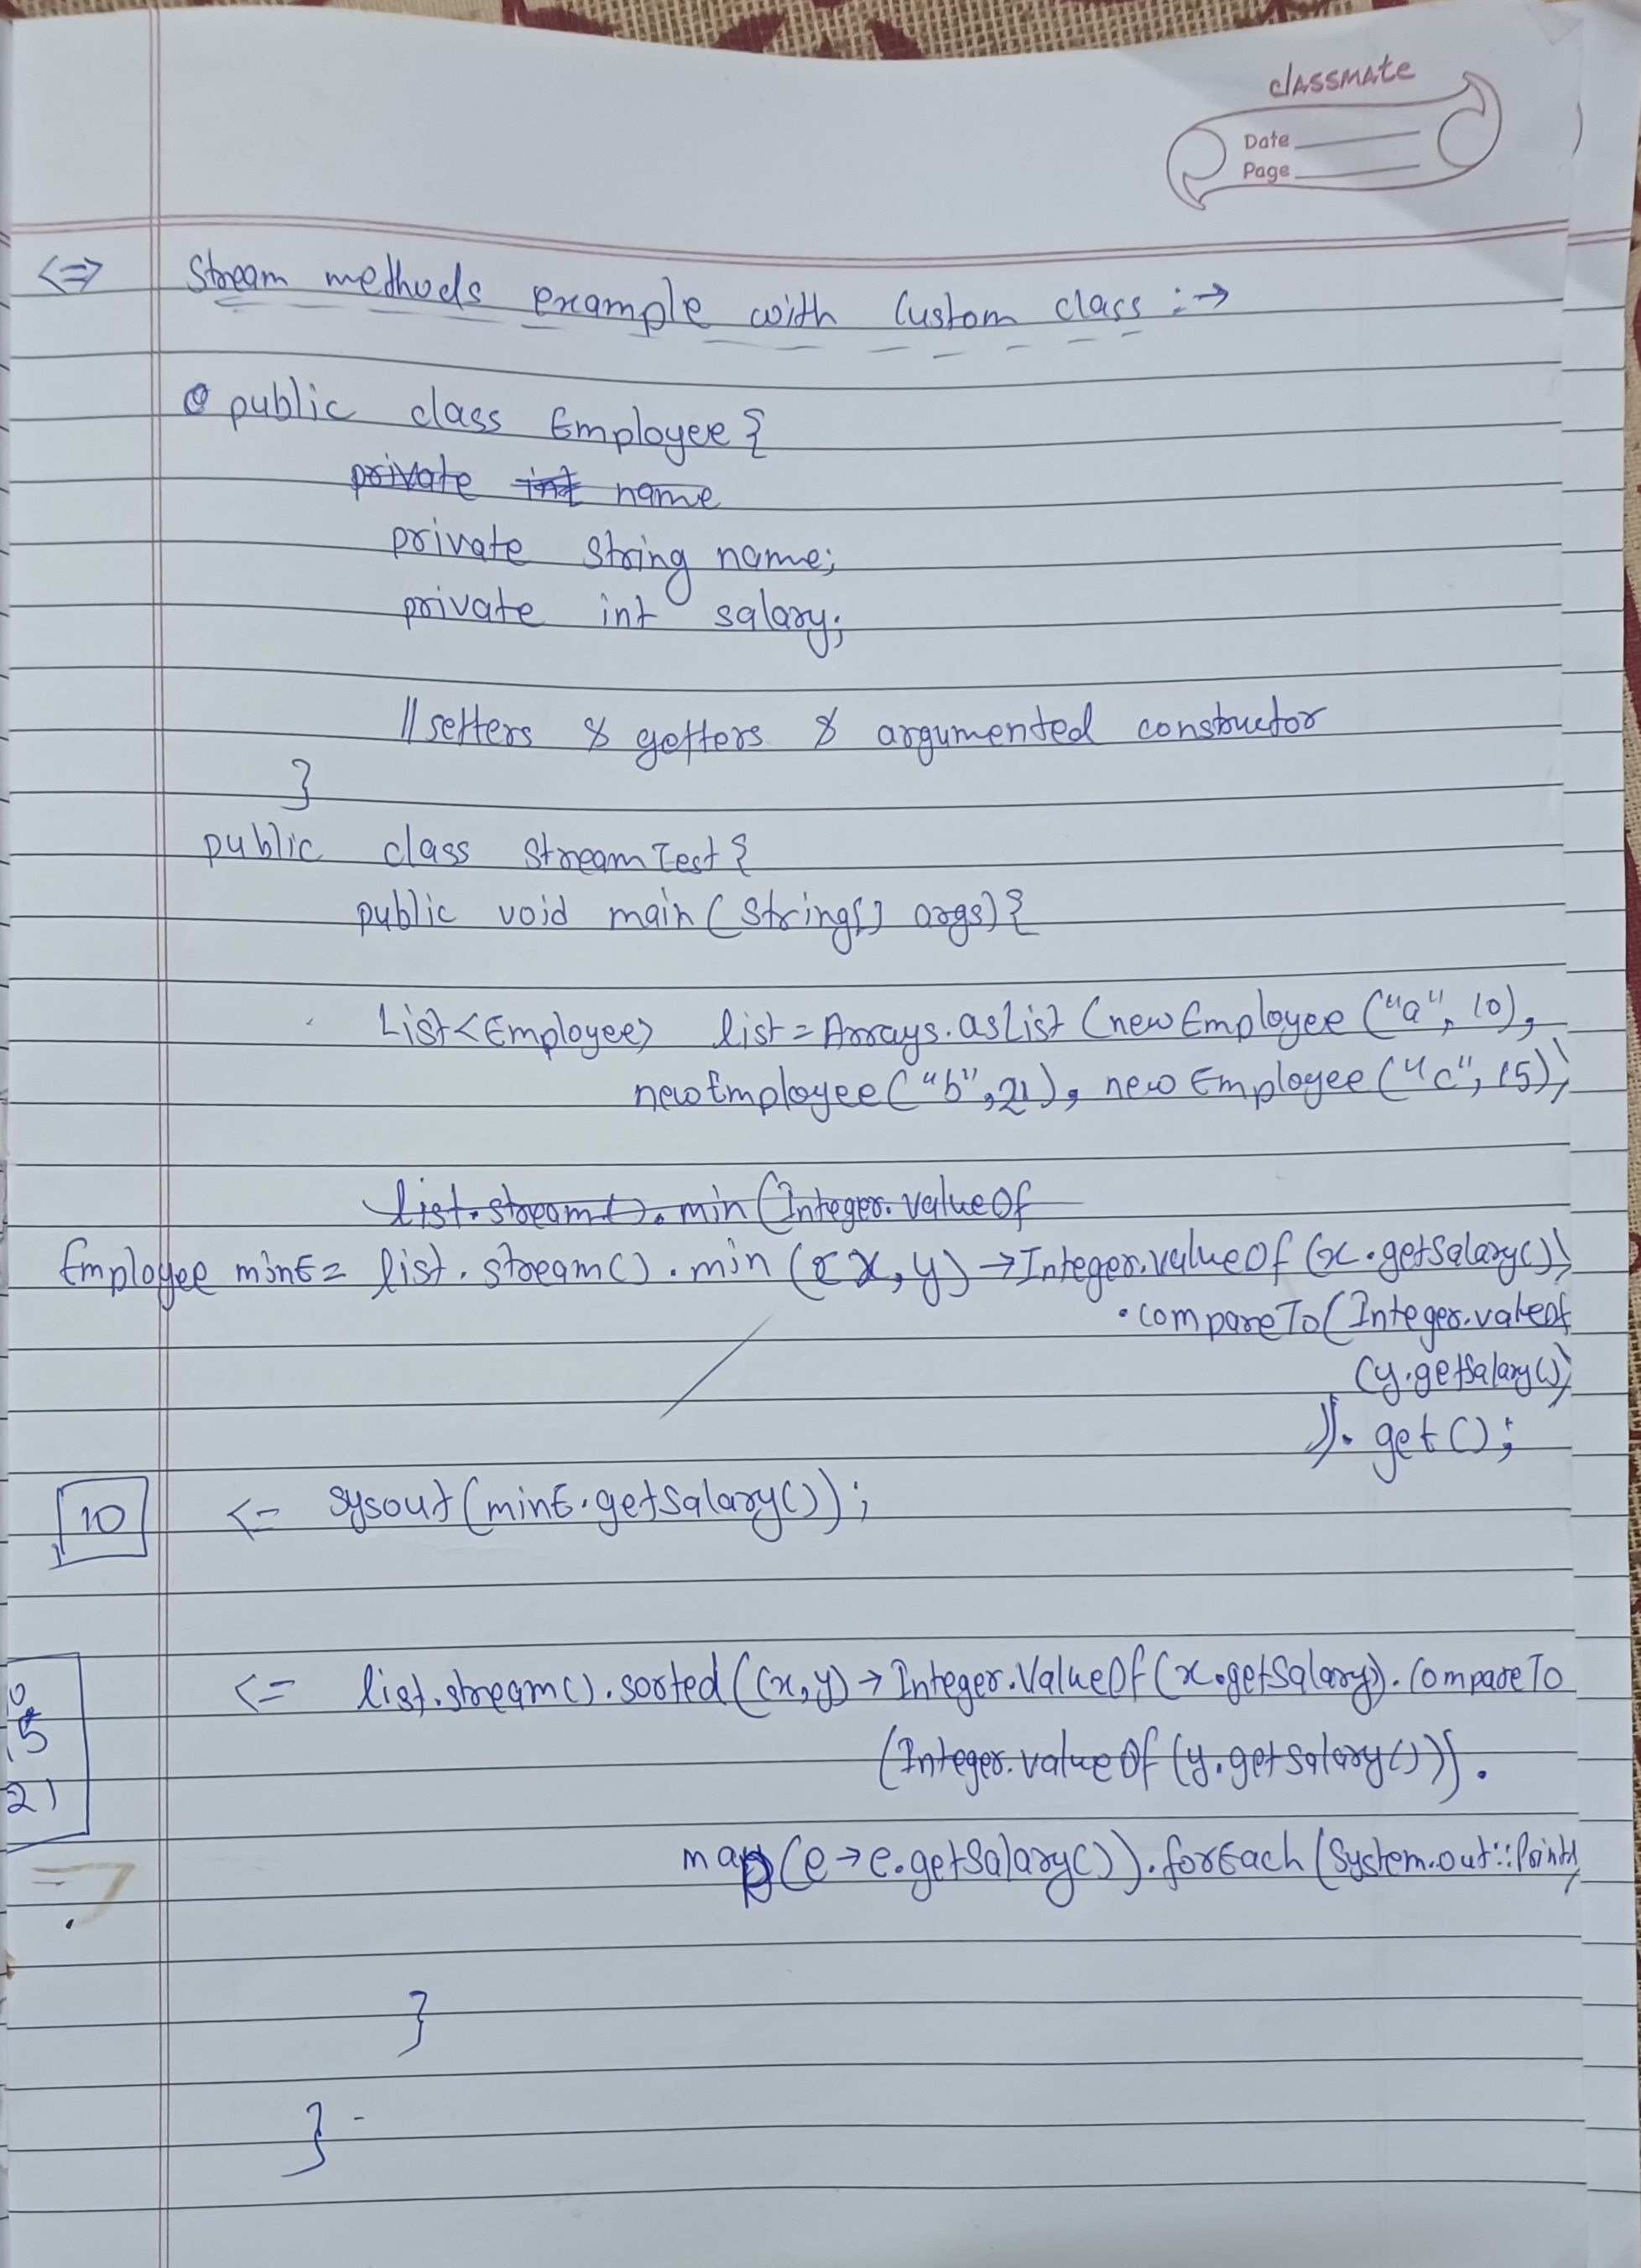 classmate
Date
Page
<=> Stream methods example with Custom class :→
public class Employee {
private int name
private String name;
private int salary;
// setters & getters & argumented constructor
}
public class StreamTest {
public void main (String[] args) {
List<Employee> list = Arrays.asList (new Employee ("a", 10),
new Employee ("b", 21), new Employee ("c", 15));
list.stream().min (Integer.valueOf
Employee minE = list.stream().min ((x, y) → Integer.valueOf (x.getSalary())
.compareTo(Integer.valueOf
(y.getSalary())
)).get();
10 <= sysout(minE.getSalary());
<= list.stream().sorted ((x,y) → Integer.ValueOf (x.getSalary)).CompareTo
(Integer.valueOf (y.getSalary())).
15
21
map(e → e.getSalary()).forEach (System.out::Println
}
}